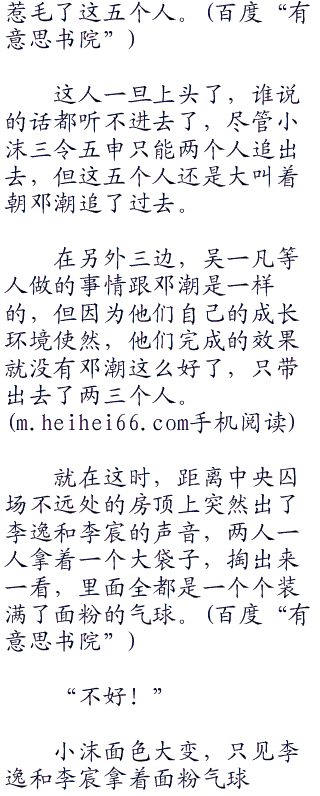 惹毛了这五个人。(百度“有
意思书院”)
这人一旦上头了，谁说
的话都听不进去了，尽管小
沫三令五申只能两个人追出
去，但这五个人还是大叫着
朝邓潮追了过去。
在另外三边，吴一凡等
人做的事情跟邓潮是一样
的，但因为他们自己的成长
环境使然，他们完成的效果
就没有邓潮这么好了，只带
出去了两三个人。
(m.heihei66.com手机阅读)
就在这时，距离中央囚
场不远处的房顶上突然出了
李逸和李宸的声音，两人一
人拿着一个大袋子，掏出来
一看，里面全都是一个个装
满了面粉的气球。(百度“有
意思书院”)
“不好！”
小沫面色大变，只见李
逸和李宸拿着面粉气球